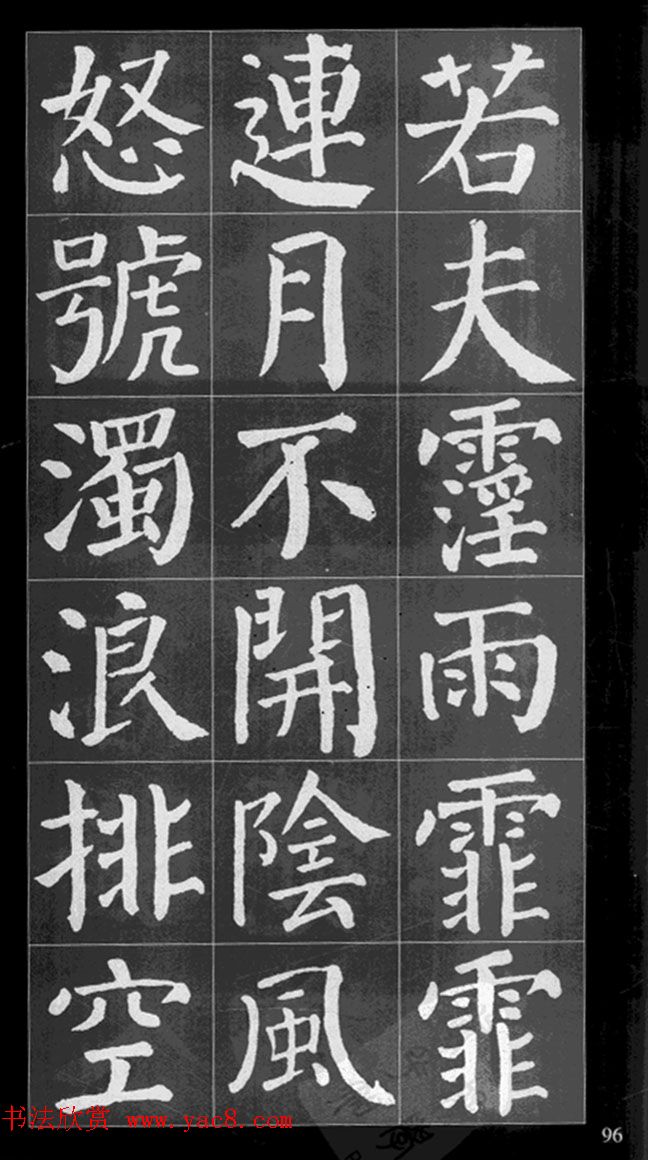 若夫霪雨霏霏
連月不開陰風
怒號濁浪排空
书法欣赏 www.yac8.com
96